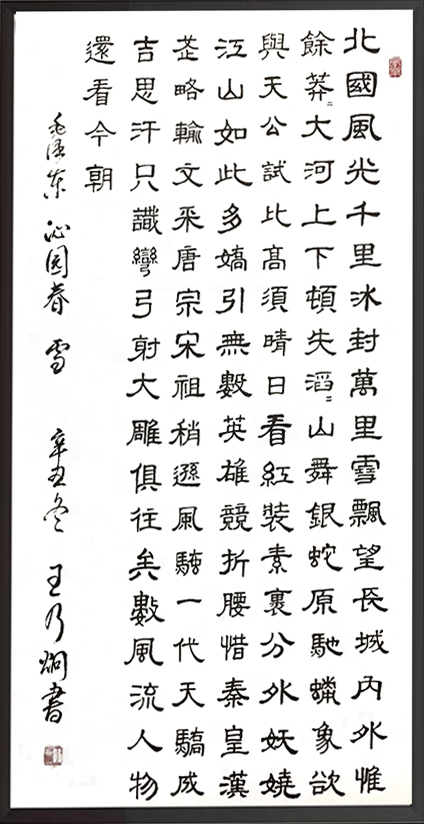 北國風光千里冰封萬里雪飄望長城內外惟
餘莽〻大河上下頓失滔〻山舞銀蛇原馳蠟象欲
與天公試比高須晴日看紅裝素裹分外妖嬈
江山如此多嬌引無數英雄競折腰惜秦皇漢
武略輸文采唐宗宋祖稍遜風騷一代天驕成
吉思汗只識彎弓射大雕俱往矣數風流人物
還看今朝
毛澤東 沁園春 雪 辛丑冬 王乃炯書